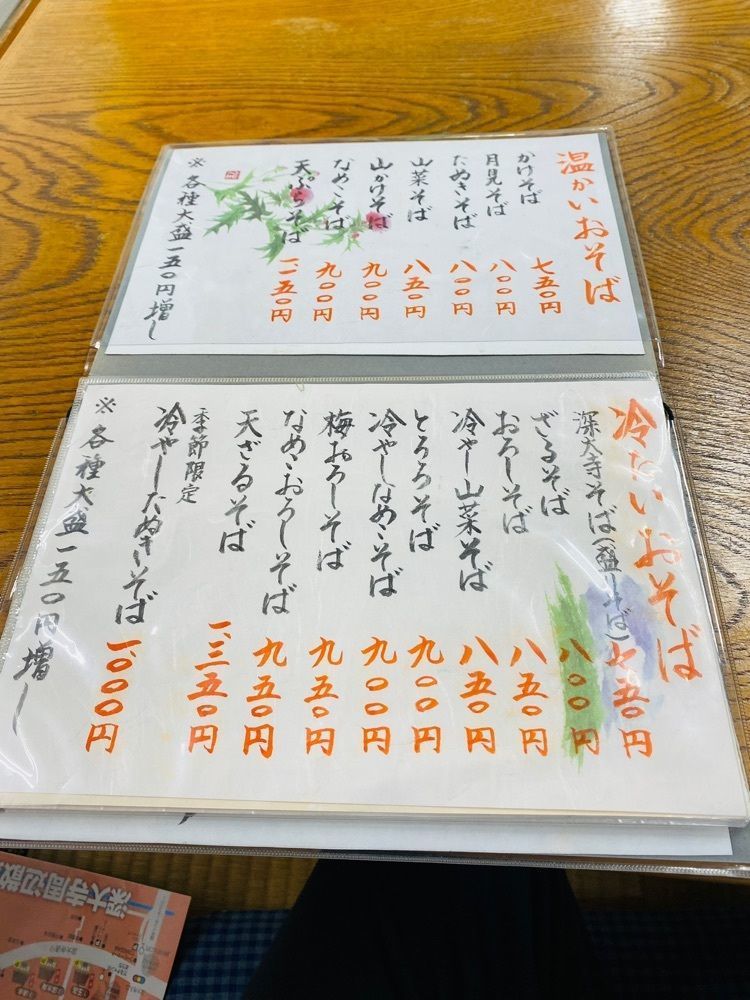 温かいおそば
かけそば 七五〇円
月見そば 八〇〇円
たぬきそば 八〇〇円
山菜そば 八五〇円
山かけそば 九〇〇円
なめこそば 九〇〇円
天ぷらそば 一二五〇円
※各種大盛一五〇円増し
冷たいおそば
深大寺そば(盛りそば) 七五〇円
ざるそば 八〇〇円
おろしそば 八五〇円
冷やし山菜そば 八五〇円
とろろそば 九〇〇円
冷やしなめこそば 九〇〇円
梅おろしそば 九五〇円
なめこおろしそば 九五〇円
天ざるそば 一、三五〇円
季節限定
冷やしたぬきそば 一、〇〇〇円
※各種大盛一五〇円増し
深大寺周辺散